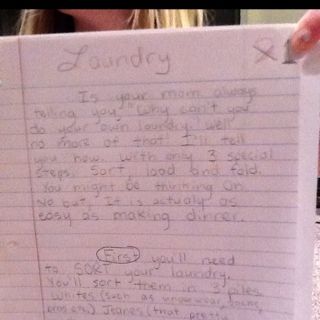 Laundry
Is your mom always
telling you, "Why can't you
do your own laundry. Well
no more of that! I'll tell
you how. With only 3 special
steps. Sort, load and fold.
You might be thinking oh
no but, It is actualy as
easy as making dinner.
First you'll need
to SORT your laundry.
You'll sort them in 3 piles
whites (such as
Jeanes (that